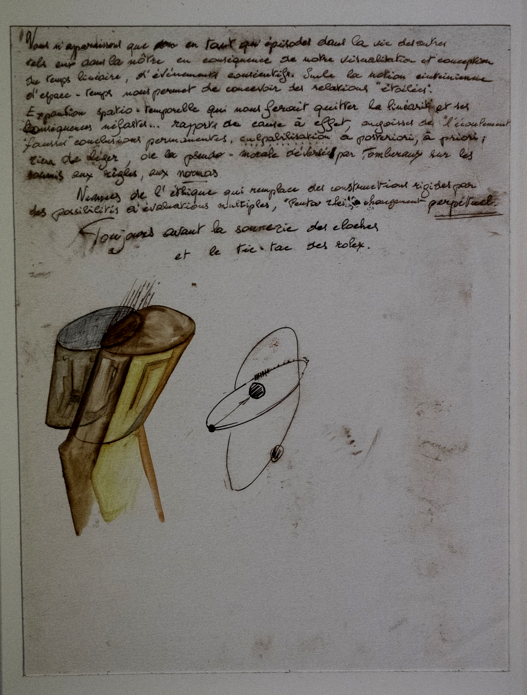 Nous n'apparaissons que en tant qu'épisodes dans la vie des autres
tels eux dans la nôtre en conséquence de notre visualisation et conception
du temps linéaire, d'événements consécutifs. Seule la notion einsteinienne
d'espace-temps nous permet de concevoir des relations "étoilées".
Expansion spatio-temporelle qui nous ferait quitter le linéarité et ses
conséquences néfastes... rapports de cause à effet, angoisses de l'écoulement
fausses conclusions permanentes, culpabilisation à postériori, à priori,
rien de léger, de la pseudo-morale déversée par Tombereaux sur les
soumis aux règles, aux normas
de l'éthique qui remplace des constructions rigides par
des possibilités d'évaluations multiples, "Penta rhei", changement perpétuel.
Toujours avant la sonnerie des cloches
et le tic-tac des rolex.